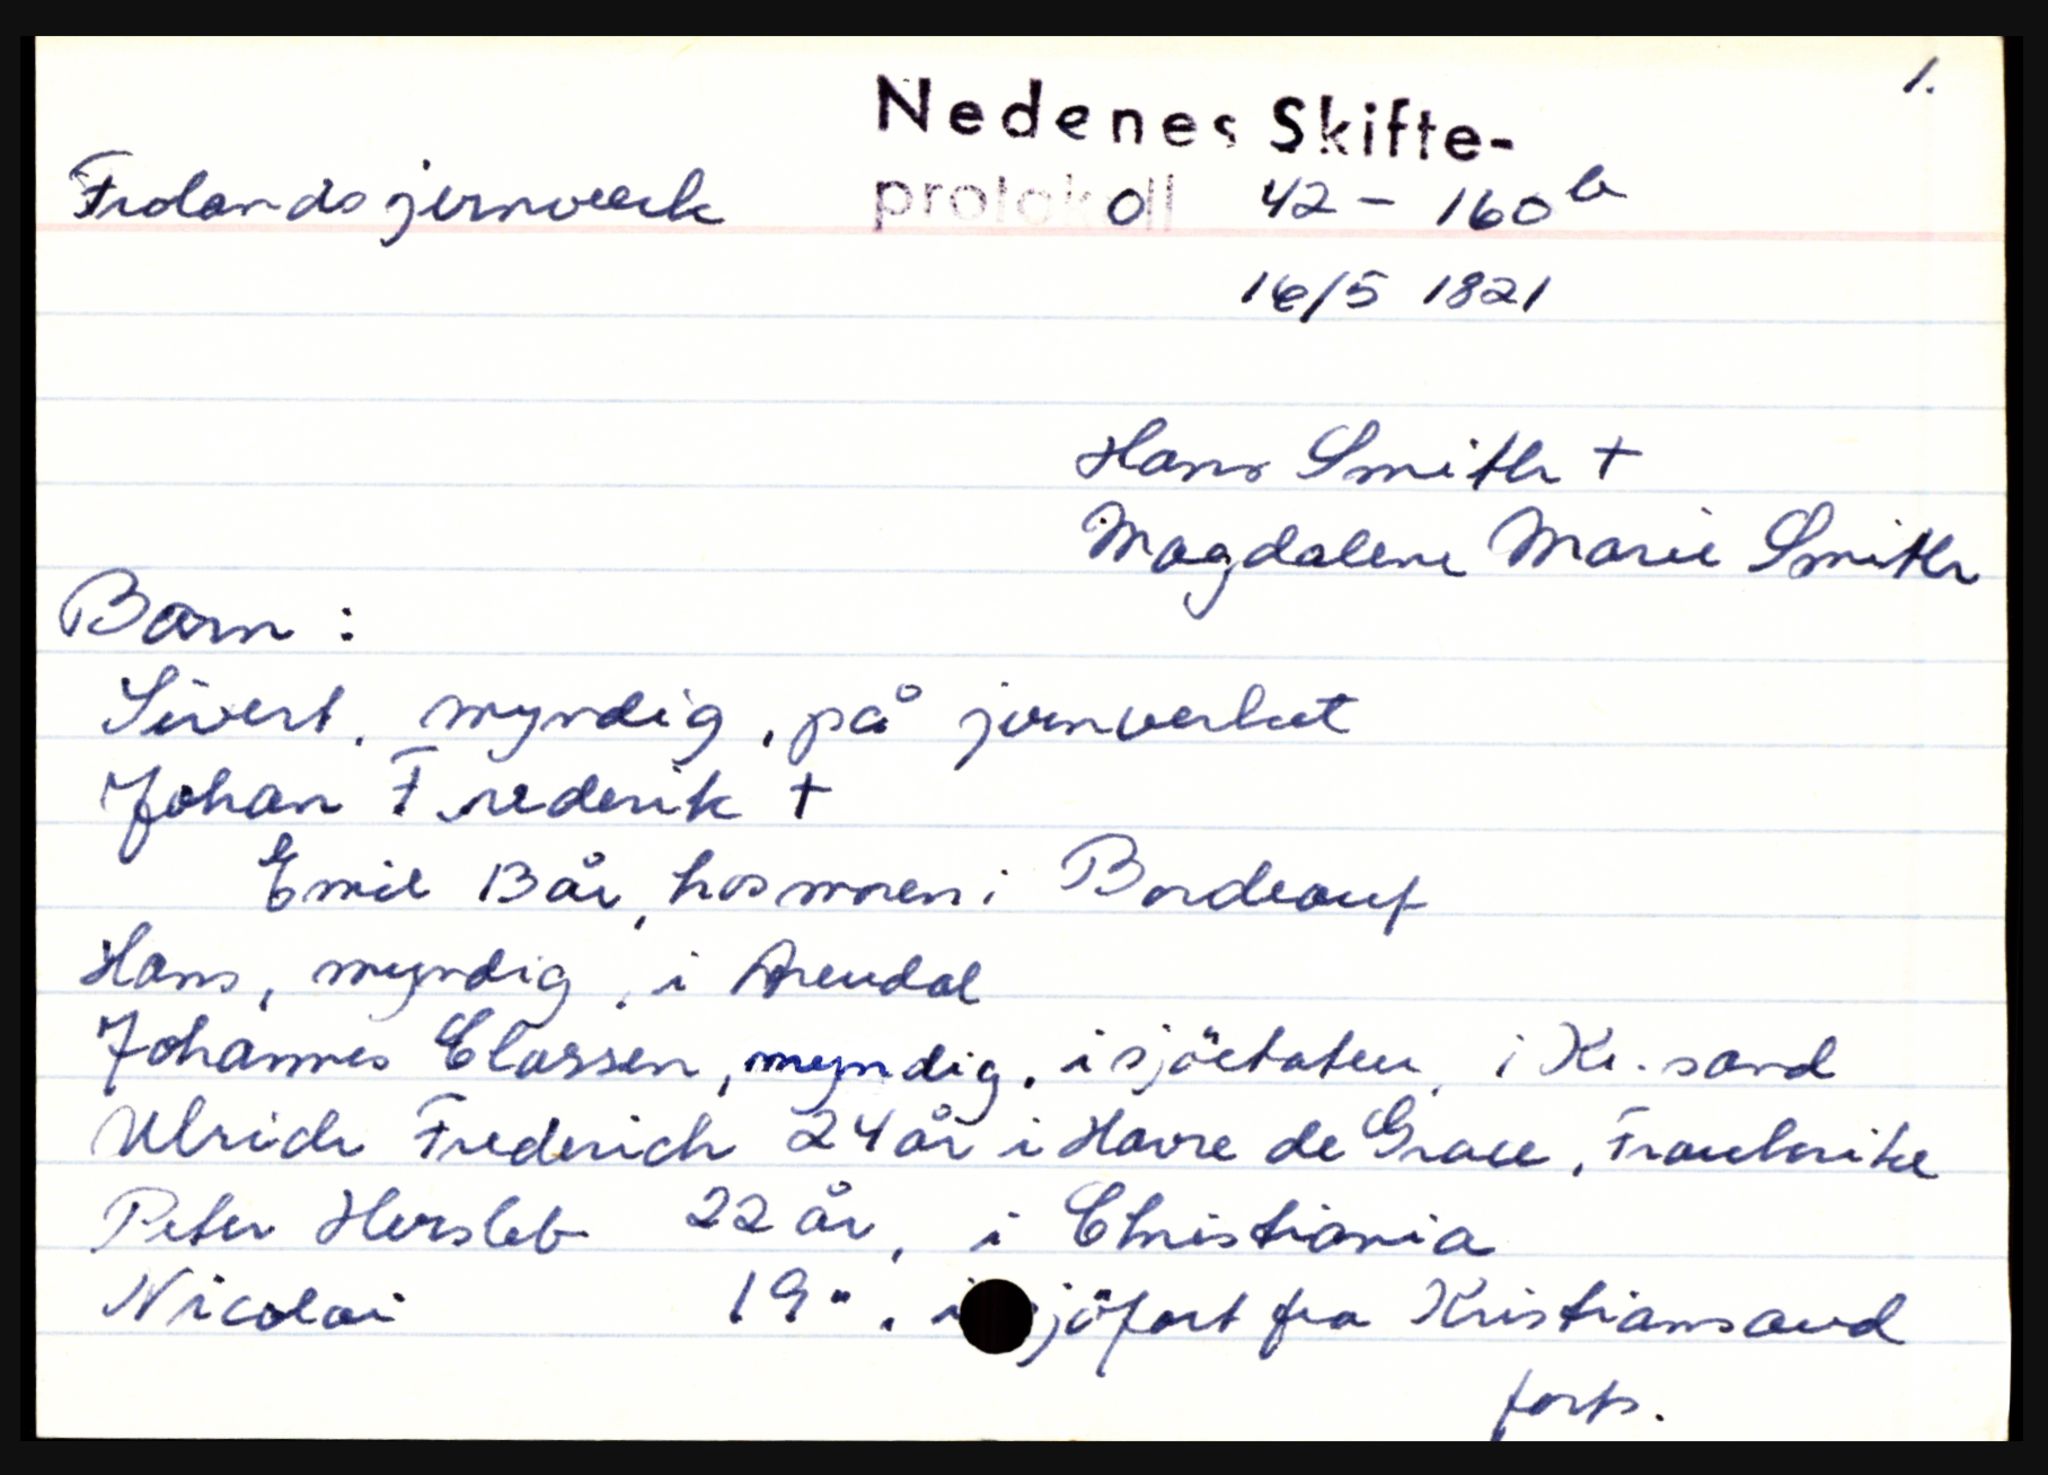 1.
Nedenes Skifte-
Frolands jernverk protokoll 42 - 160 b
16/5 1821
Hans Smith +
Magdalene Marie Smith
Barn :
Sivert, myndig, på jernverket
Johan Frederik +
Emil 13 år, hos moren i Bordeaux
Hans, myndig, i Arendal
Johannes Classen, myndig, i sjöetaten, i Kr.sand
Ulrich Frederich 24 år i Havre de Grace, Frankrike
Peter Hersleb 22 år, i Christiania
Nicolai 19 ", i sjöfart fra Kristiansand
forts.